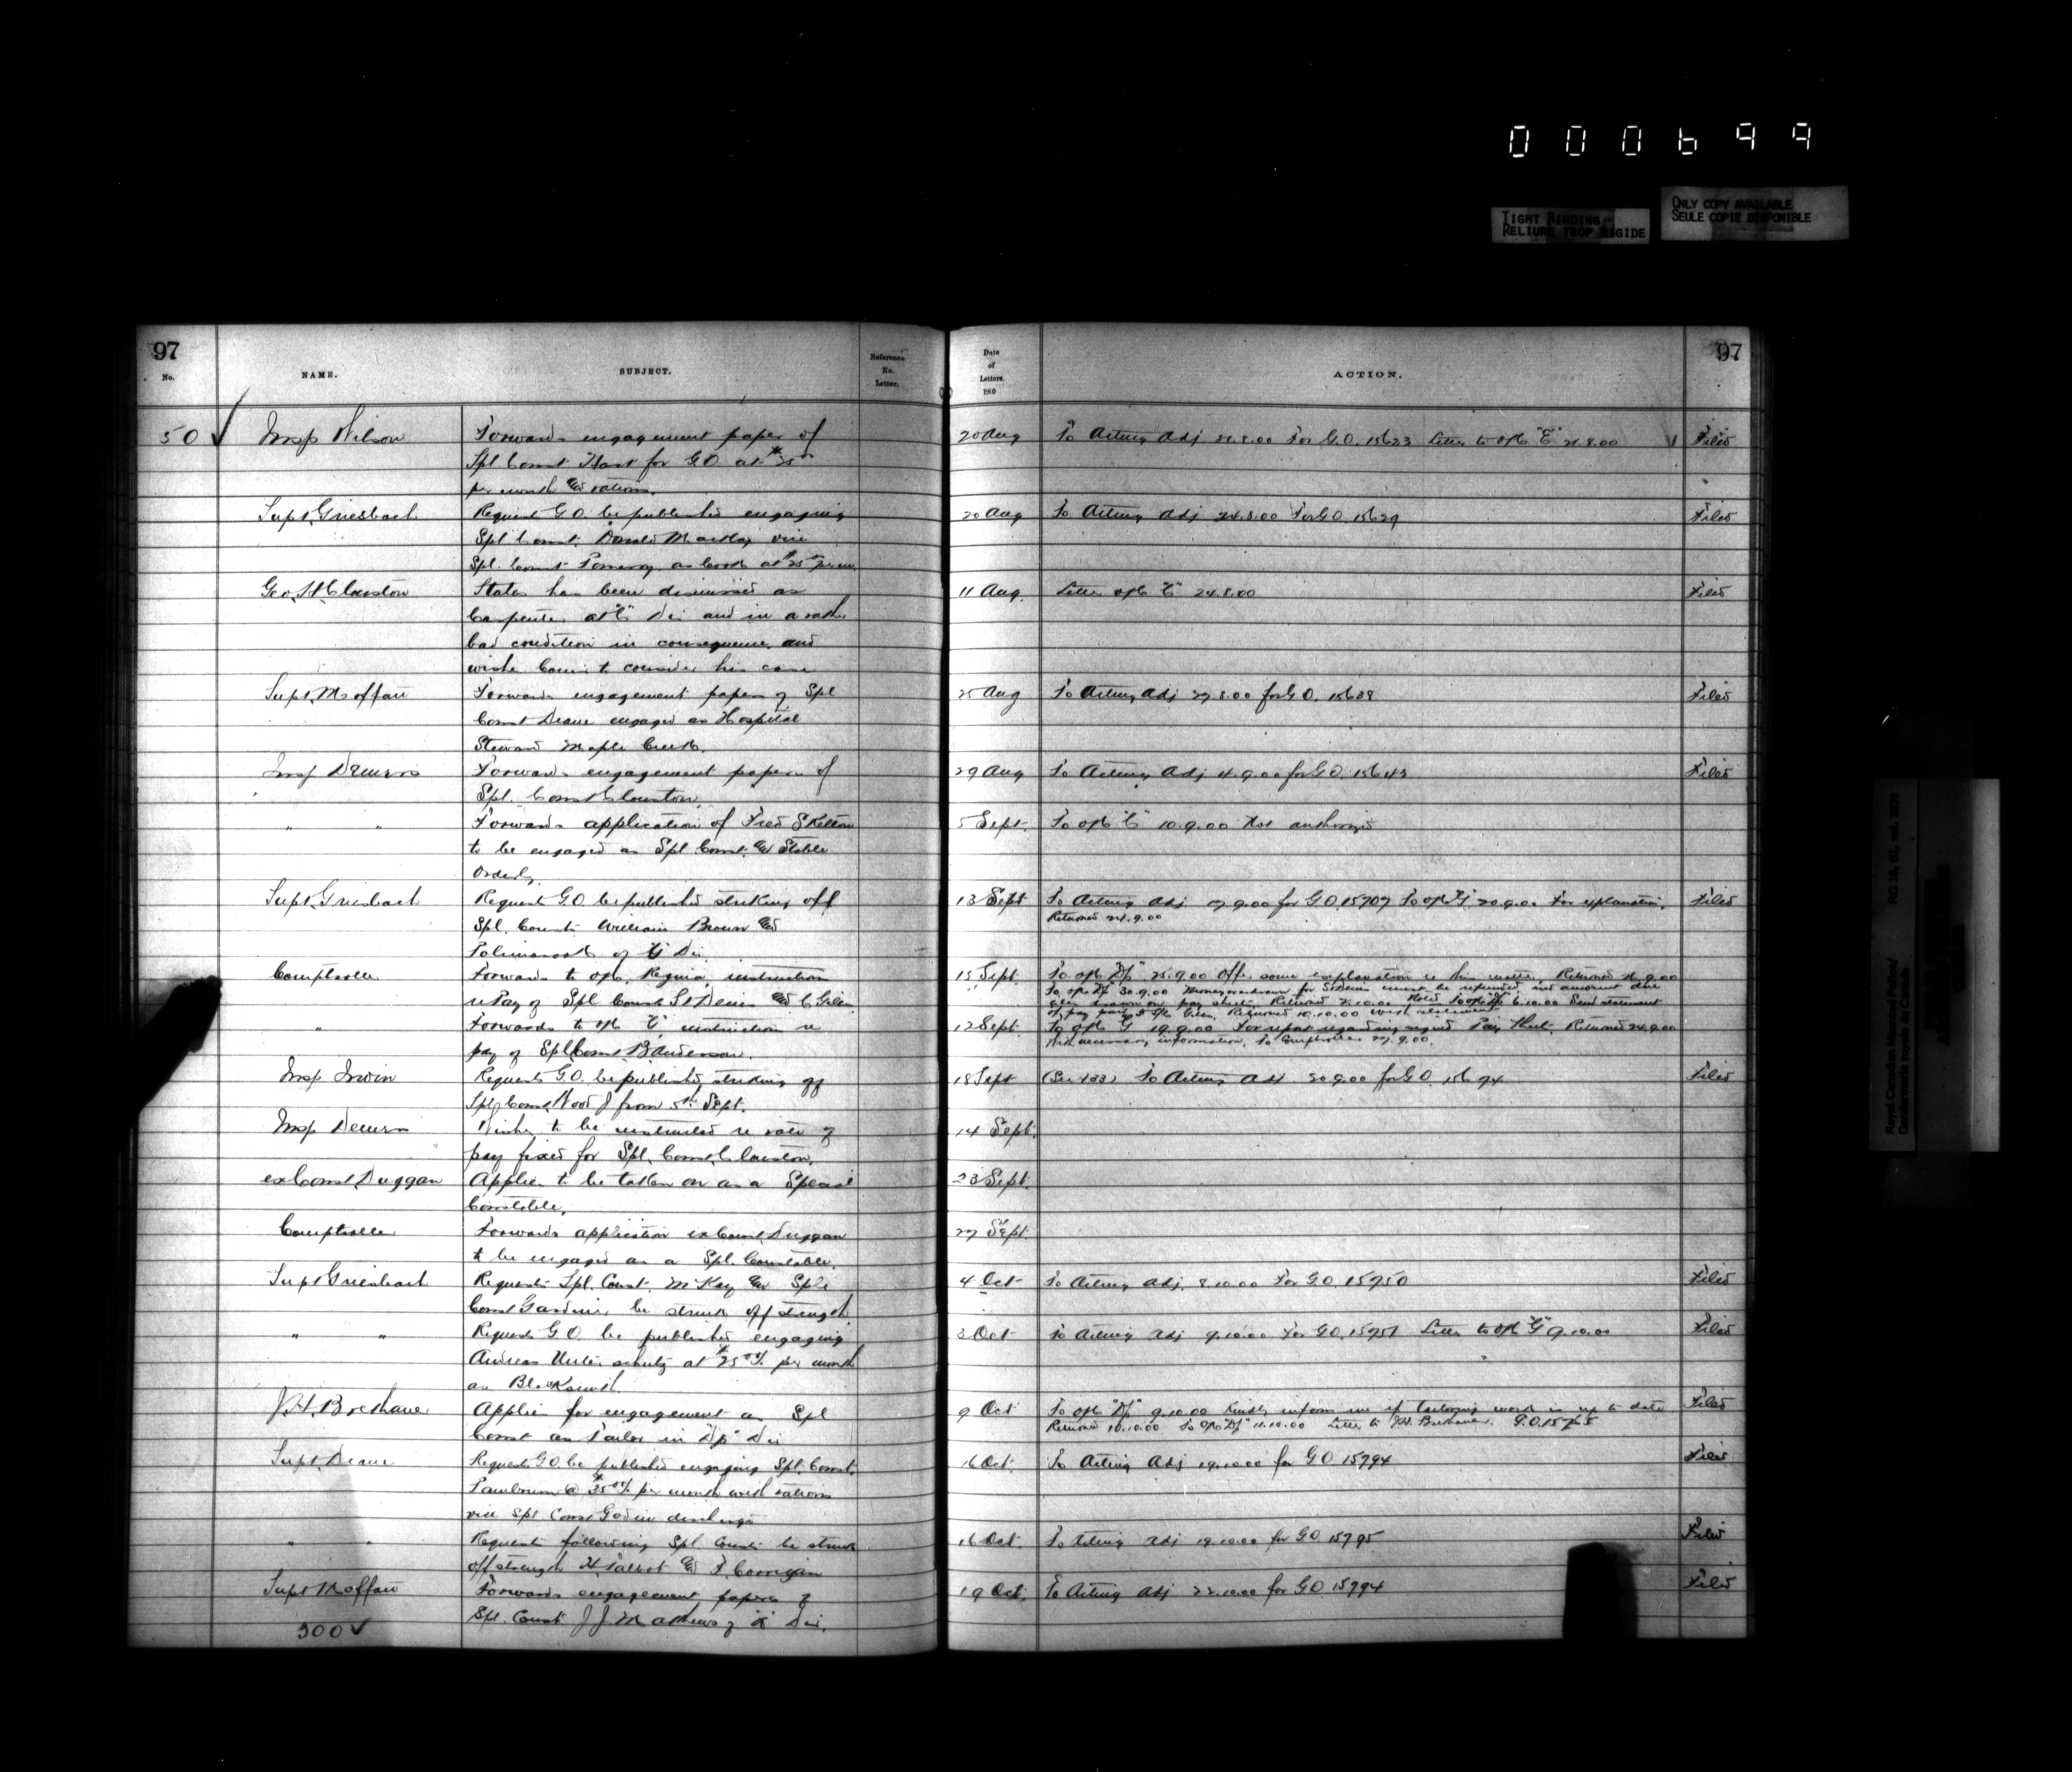 000699
TIGHT BINDING
RELIURE TROP RIGIDE
ONLY COPY AVAILABLE
SEULE COPIE DISPONIBLE
97
No.
NAME.
SUBJECT.
Reference
No.
Letter.
Date
of
Letters.
190
ACTION.
97
50 ✓ Insp Wilson
Forwards engagement paper of
Spl Const Hart for G.O. at $25
per month and rations.
20 Aug
To Acting Adj 21.8.00 For G.O. 15623 Letter to ofc "E" 21.8.00
Filed
Supt Griesbach
Request G.O. be published engaging
Spl Const. Donald Mackay vice
Spl. Const Pomeroy as Cook at $25
20 Aug
To Acting Adj 24.8.00 For G.O. 15629
Filed
Geo. H. Clouston
States has been dismissed as
Carpenter at "C" Div and in a rather
bad condition in consequence and
wishes Comr to consider his case
11 Aug.
Letter ofc "C" 24.8.00
Filed
Supt. Moffatt
Forwards engagement papers of Spl
Const Deane engaged as Hospital
Steward Maple Creek.
25 Aug
To Acting Adj 29.8.00 for G.O. 15638
Filed
Insp Demers
Forwards engagement papers of
Spl. Const Clouston.
29 Aug
To Acting Adj 4.9.00 for G.O. 15643
Filed
" "
Forwards application of Fred Skelton
to be engaged as Spl Const. and Stable
Orderly
5 Sept.
To ofc "C" 10.9.00 Not authorized
Supt. Griesbach
Request G.O. be published striking off
Spl. Consts William Brown and
of "G" Div.
13 Sept
To Acting Adj 17.9.00 for G.O. 15707 To ofc "G" 20.9.00 For explanation.
Returned 24.9.00
Filed
Comptroller
Forwards to ofc. Regina, instruction
re Pay of Spl Consts St Denis and C Giles
15 Sept.
To ofc "Dp" 25.9.00 Offer some explanation re this matter. Returned 26.9.00
To ofc "Dp" 30.9.00 Money overdrawn for St Denis must be refunded, and amount due
Giles drawn on pay sheet. Returned 2.10.00 Noted To ofc "Dp" 6.10.00 Send statement
of pay paid to Spl Giles. Returned 10.10.00 with statement
"
Forwards to ofc "G" instruction re
pay of Spl Const B Anderson.
12 Sept.
To ofc "G" 19.9.00 For report regarding signed Pay Sheet. Returned 24.9.00
With necessary information. To Comptroller 27.9.00.
Insp Irwin
Requests G.O. be published striking off
Spl Const Wood J from 5th Sept.
18 Sept
(See 133) To Acting Adj 20.9.00 for G.O. 15694
Filed
Insp Demers
Wishes to be instructed re rate of
pay fixed for Spl. Const. Clouston.
14 Sept.
ex Const Duggan
Applies to be taken on as a Special
Constable.
23 Sept.
Comptroller
Forwards application ex Const Duggan
to be engaged as a Spl. Constable.
27 Sept.
Supt Griesbach
Requests Spl. Const. McKay and Spl
Const Gardiner be struck off strength.
4 Oct
To Acting Adj. 8.10.00 For G.O. 15750
Filed
" "
Requests G.O. be published engaging
Andreas at $25 per month
as Blacksmith.
3 Oct
To Acting Adj 9.10.00 For G.O. 15751 Letter to ofc "G" 9.10.00
Filed
J.H.
Applies for engagement as Spl
Const as Tailor in "Dp" Div
9 Oct
To ofc "Dp" 9.10.00 Kindly inform me if tailoring work is up to date
Returned 10.10.00 To ofc "Dp" 11.10.00 Letter to J.H.
Filed
Supt. Deane
Request G.O. be published engaging Spl. Const.
@ $35 per month with rations
vice Spl Const Godin discharged
16 Oct.
To Acting Adj 19.10.00 for G.O. 15794
Filed
" "
Requests following Spl. Consts be struck
off strength H. Talbot and F. Corrigan
16 Oct.
To Acting Adj 19.10.00 for G.O. 15795
Filed
Supt Moffatt
Forwards engagement papers of
Spl. Const J.J. Mathews of "K" Div.
19 Oct.
To Acting Adj 22.10.00 for G.O. 15794
Filed
300 ✓
Royal Canadian Mounted Police/
Gendarmerie royale du Canada